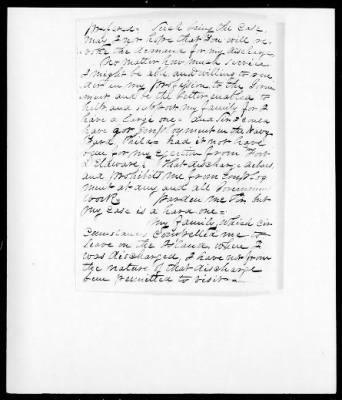 prefered. Such being the case,
may I not hope that you will re-
voke the demand for my discharge
No matter how much service
I might be able and willing to ren
der in my profession, to the Gover
ment and be the better enabled to
help and support my family for I
have a large one. Dear Sir I could
have got employment in the Navy
Yard, Phila. had it not have
been for my ejection from Fort
Delaware. That discharge debars
and prohibits me from employ
ment at any and all Government
work. Pardon me Sir but
my case is a hard one.
My family, which cir
cumstances controlled me to
leave on the Island where I
was discharged, I have not from
the nature of that discharge
been permitted to visit.